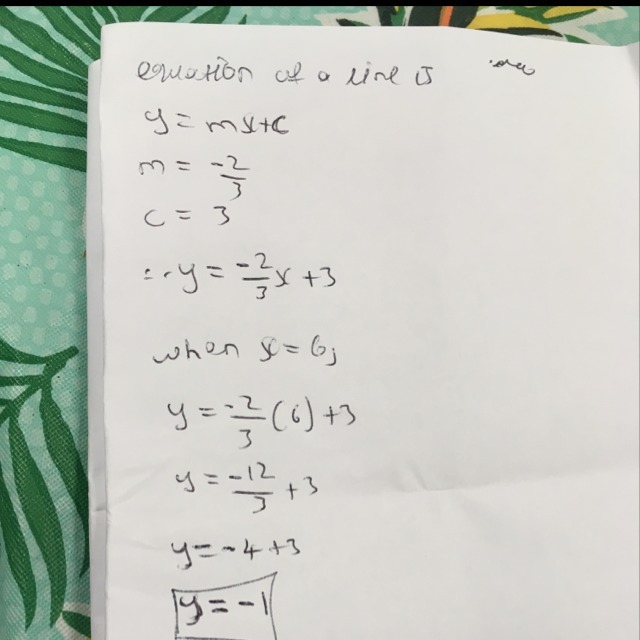 equation of a line is
y = mx+c
m = -2/3
c = 3
∴ y = -2/3 x + 3
when x = 6,
y = -2/3 (6) + 3
y = -12/3 + 3
y = -4 + 3
y = -1